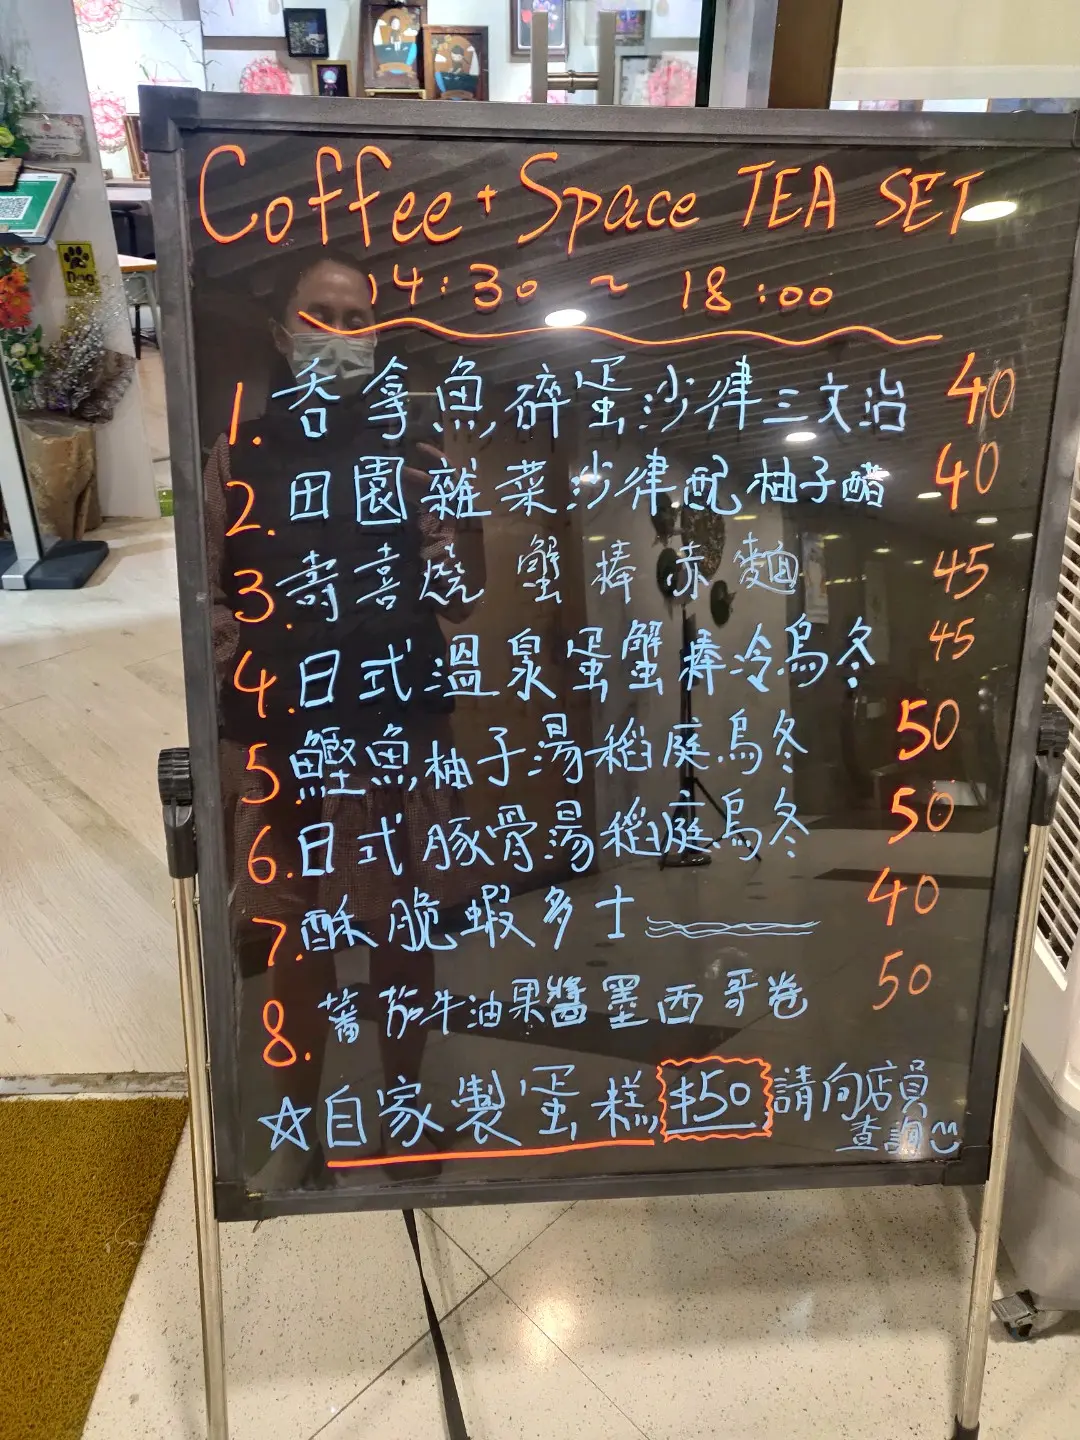 Coffee + Space TEA SET
14:30 ~ 18:00
1. 吞拿魚碎蛋沙律三文治 40
2. 田園雜菜沙律配柚子醋 40
3. 壽喜燒蟹棒赤麵 45
4. 日式溫泉蛋蟹棒冷烏冬 45
5. 鰹魚柚子湯稻庭烏冬 50
6. 日式豚骨湯稻庭烏冬 50
7. 酥脆蝦多士 40
8. 蕃茄牛油果醬墨西哥卷 50
☆自家製蛋糕 +50 請向店員
查詢
Dog